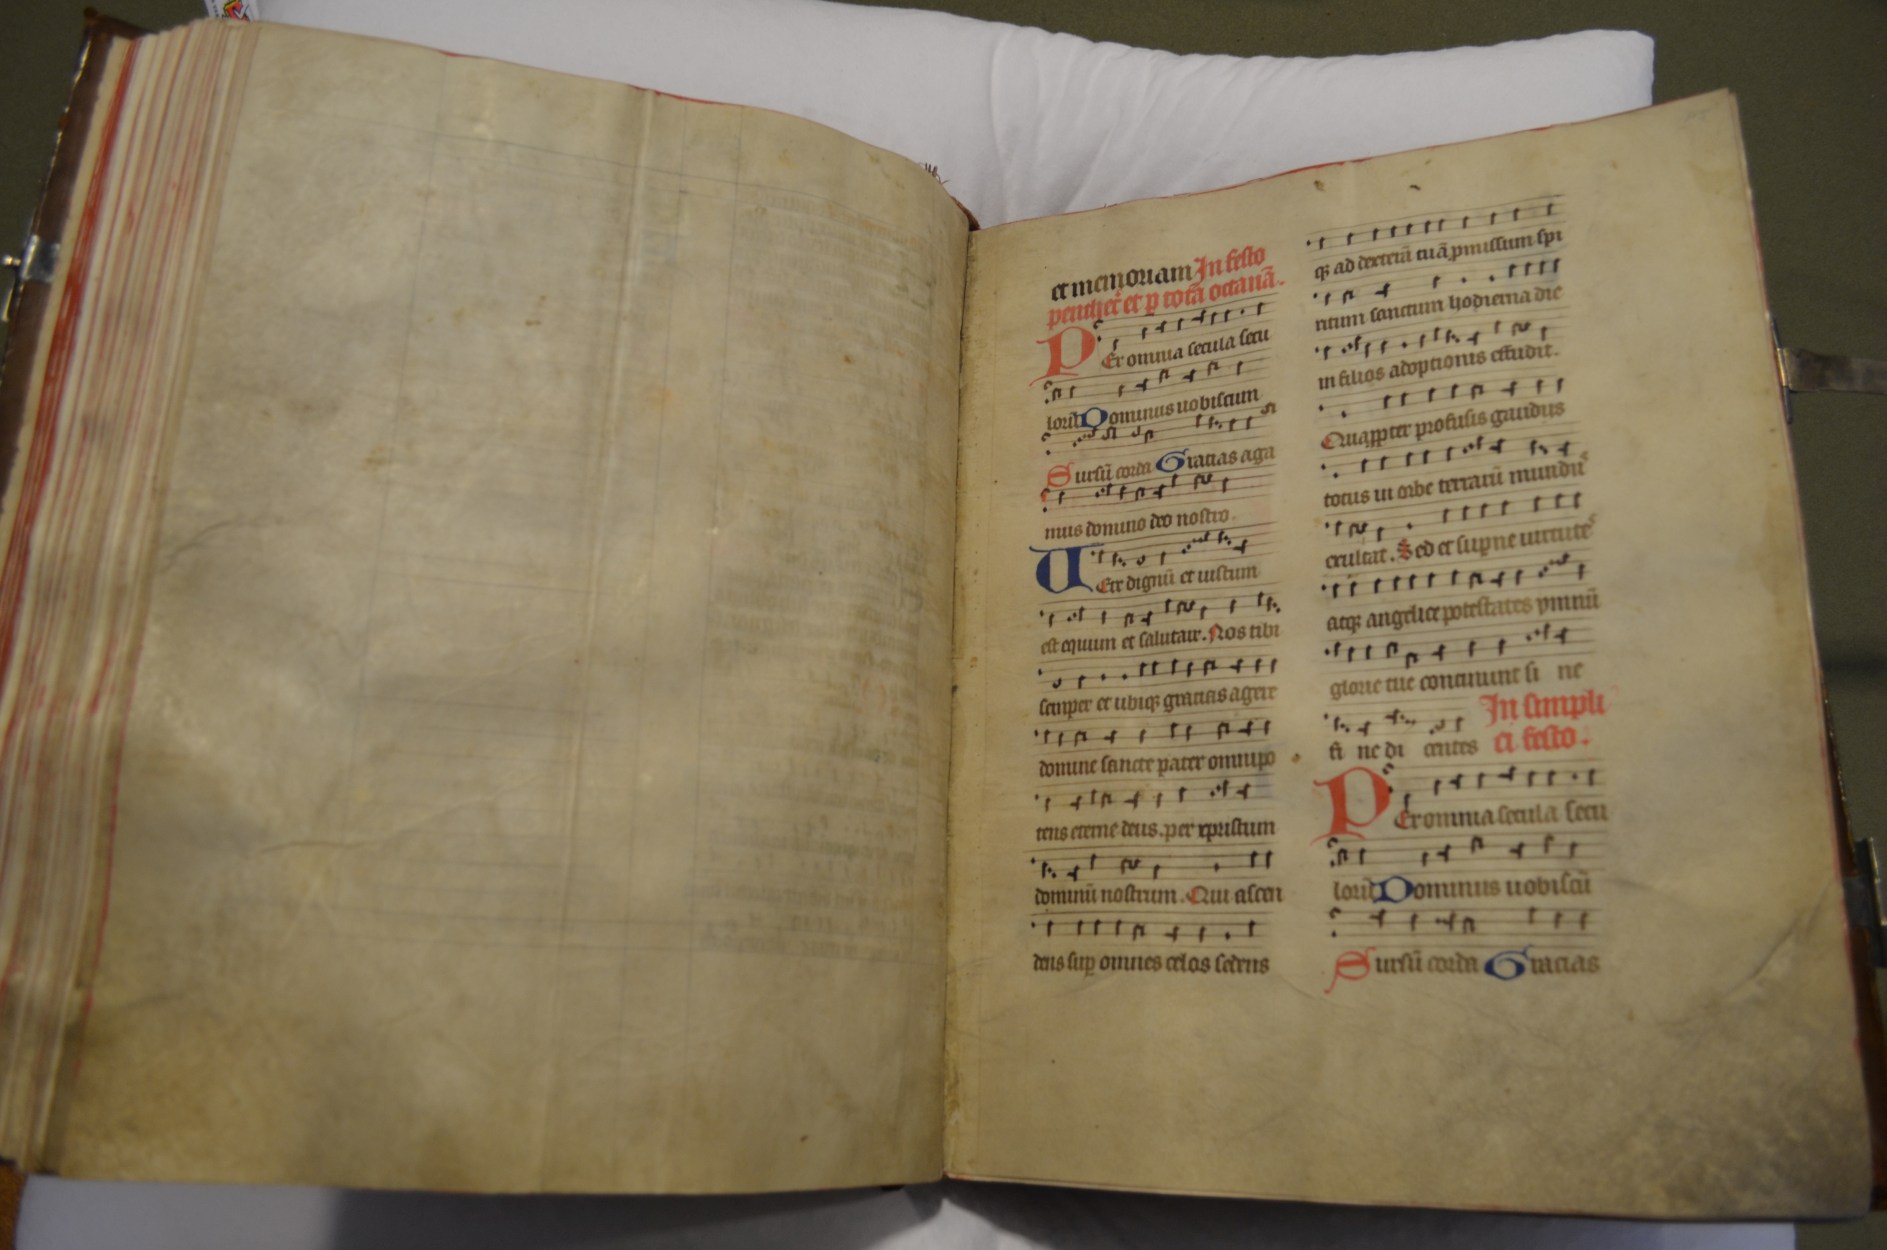 et memoriam In festo
penthec̄ et ꝑ totā octauā.
PEr omnia secula secu
lorū Dominus uobiscum
Sursū corda Gracias aga
mus domino deo nostro.
UEre dignū et iustum
est equum et salutare. Nos tibi
semper et ubiqꝫ gracias agere
domine sancte pater omnipo
tens eterne deus. per xpristum
dominū nostrum. Qui ascen
dens suꝑ omnes celos sedens
qꝫ ad dexterā tuā ꝓmissum spi
ritum sanctum hodierna die
in filios adoptionis effudit.
Quaꝓpter profusis gaudijs
totus in orbe terrarū mundꝰ
exultat. Sed et suꝑne uirtutes
atqꝫ angelice potestates ymnū
glorie tue concinunt si ne
fi ne di centes In simpli
ci festo.
PEr omnia secula secu
lorū Dominus uobiscū
Sursū corda Gracias